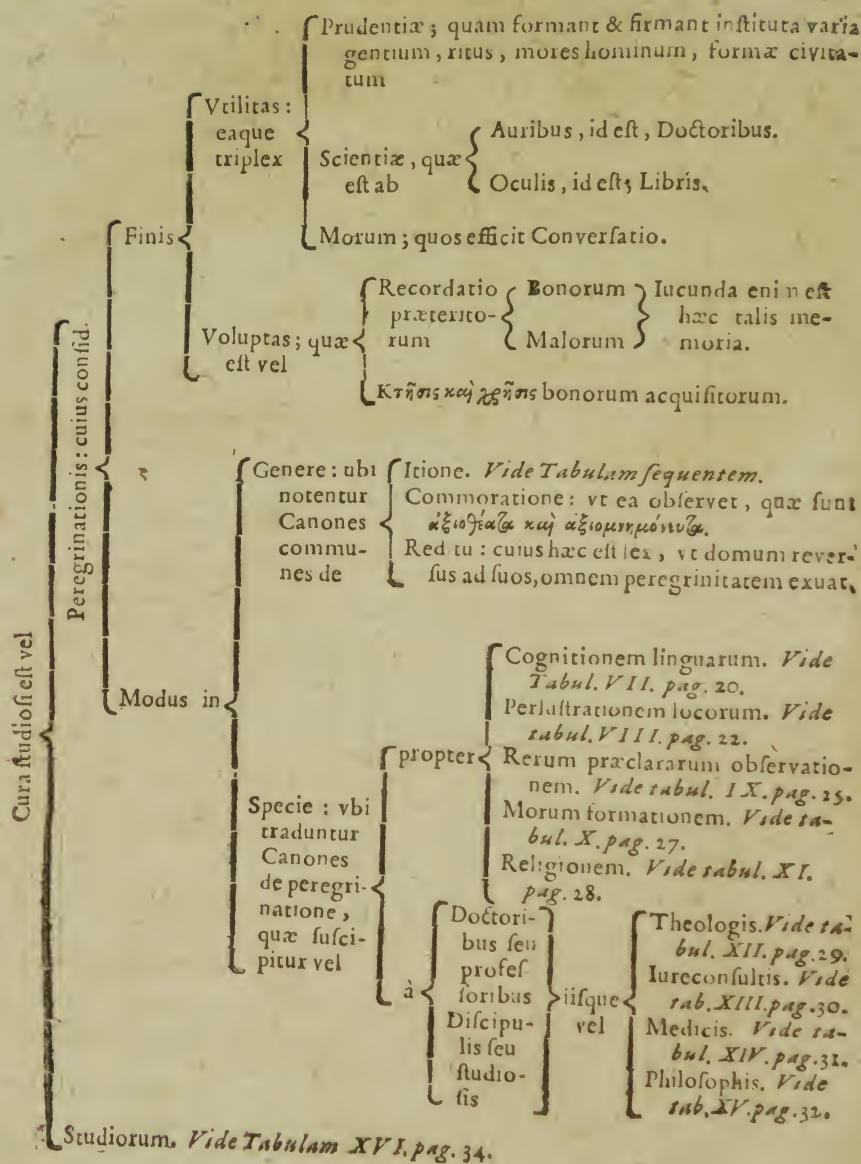 Cura ſtudioſi eſt vel
Peregrinationis: cuius conſid.
Finis
Vtilitas:
eaque
triplex
Prudentiæ; quam formant & firmant inſtituta varia
gentium, ritus, mores hominum, formæ civita-
tum
Scientiæ, quæ
eſt ab
Auribus, id eſt, Doctoribus.
Oculis, id eſt; Libris.
Morum; quos efficit Converſatio.
Voluptas; quæ
eſt vel
Recordatio
præterito-
rum
Bonorum
Malorum
Iucunda enim eſt
hæc talis me-
moria.
Κτῆσις καὶ χρῆσις bonorum acquiſitorum.
Modus in
Genere: ubi
notentur
Canones
commu-
nes de
Itione. Vide Tabulam ſequentem.
Commoratione: vt ea obſervet, quæ ſunt
ἀξιοθέατα καὶ ἀξιομνημόνευτα.
Reditu: cuius hæc eſt lex, vt domum rever-
ſus ad ſuos, omnem peregrinitatem exuat.
Specie: vbi
traduntur
Canones
de peregri-
natione,
quæ ſuſci-
pitur vel
propter
Cognitionem linguarum. Vide
Tabul. VII. pag. 20.
Perluſtrationem locorum. Vide
tabul. VIII. pag. 22.
Rerum præclararum obſervatio-
nem. Vide tabul. IX. pag. 25.
Morum formationem. Vide ta-
bul. X. pag. 27.
Religionem. Vide tabul. XI.
pag. 28.
à
Doctori-
bus ſeu
profeſ
ſoribus
Diſcipu-
lis ſeu
ſtudio-
ſis
iiſque
vel
Theologis. Vide ta-
bul. XII. pag. 29.
Iureconſultis. Vide
tab. XIII. pag. 30.
Medicis. Vide ta-
bul. XIV. pag. 31.
Philoſophis. Vide
tab. XV. pag. 32.
Studiorum. Vide Tabulam XVI. pag. 34.